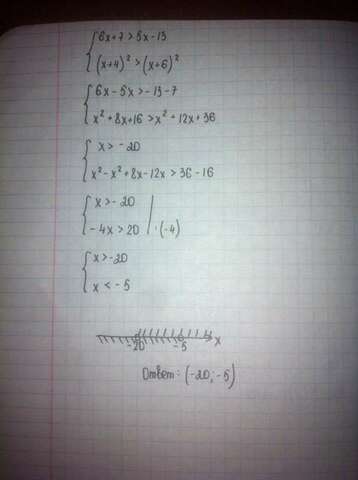 6x+7>5x-13
(x+4)²>(x+6)²
6x-5x>-13-7
x²+8x+16>x²+12x+36
x>-20
x²-x²+8x-12x>36-16
x>-20
-4x>20 | :(-4)
x>-20
x<-5
-20 -5 x
Ответ: (-20;-5)